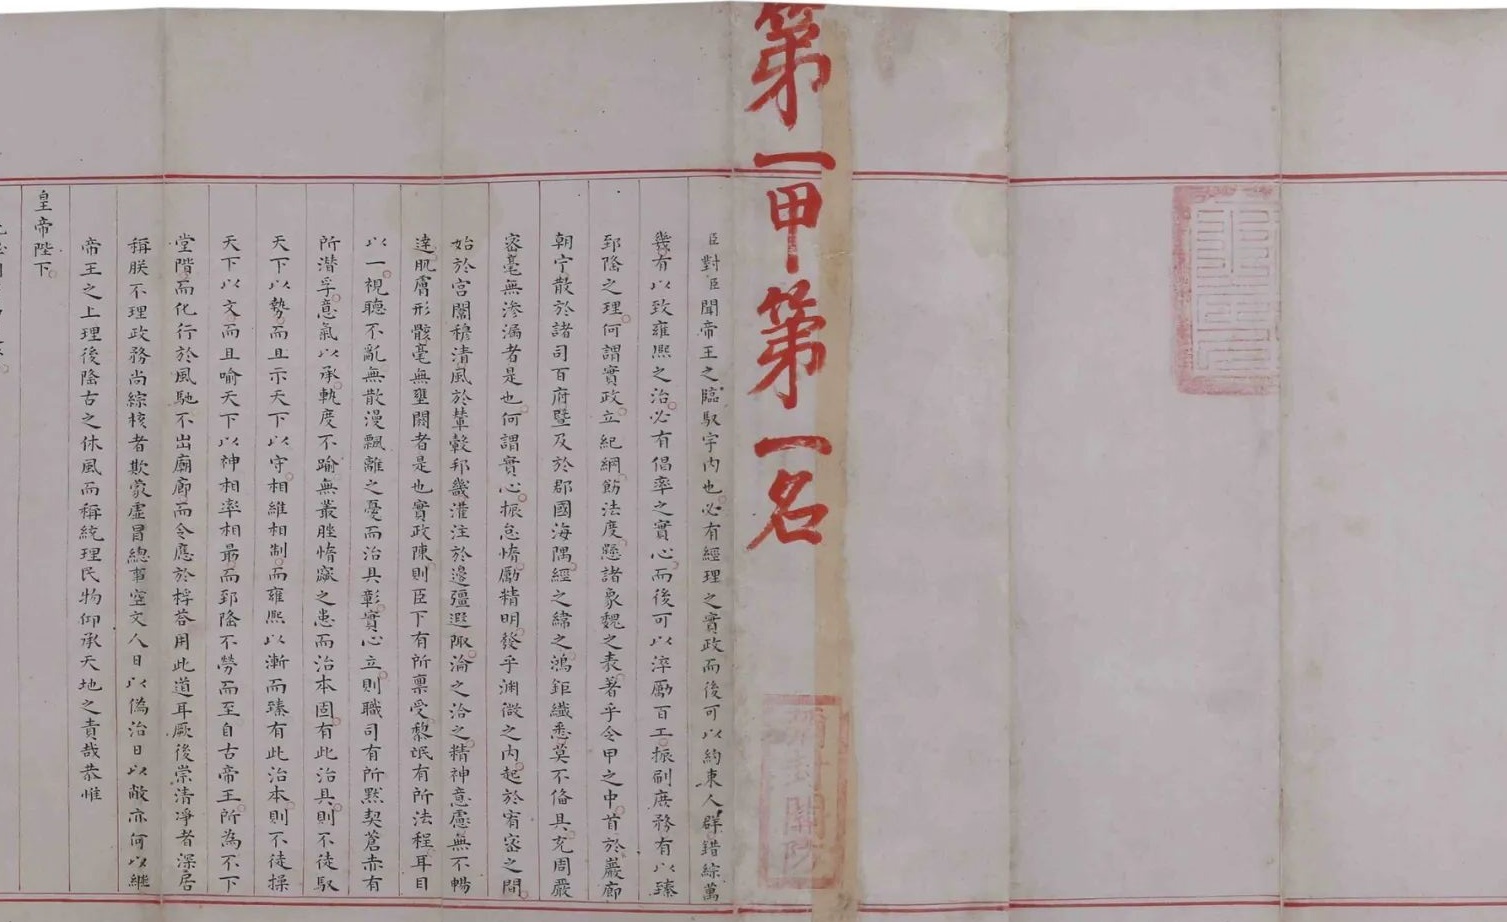 第一甲第一名
彌封關防
臣對臣聞帝王之臨馭宇內也必有經理之實政而後可以約束人群錯綜萬
幾有以致雍熙之治必有倡率之實心而後可以淬勵百工振刷庶務有以臻
郅隆之理何謂實政立紀綱飭法度懸諸象魏之表著乎令甲之中首於巖廊
朝宁散於諸司百府暨及於郡國海隅經之緯之鴻鉅纖悉莫不備具充周嚴
密毫無滲漏者是也何謂實心振怠惰勵精明發乎淵微之內起於宥密之間
始於宮闈穆清風於輦轂邦畿灌注於邊疆遐陬淪之洽之精神意慮無不暢
達肌膚形骸毫無壅閼者是也實政陳則臣下有所稟受黎氓有所法程耳目
以一視聽不亂無散漫飄離之憂而治具彰實心立則職司有所默契蒼赤有
所潛孚意氣以承軌度不踰無叢脞惰窳之患而治本固有此治具則不徒馭
天下以勢而且示天下以守相維相制而雍熙以漸而臻有此治本則不徒操
天下以文而且喻天下以神相率相最而郅隆不勞而至自古帝王所為不下
堂階而化行於風馳不出廟廊而令應於桴荅用此道耳厥後崇清凈者深居
稱朕不理政務尚綜核者欺蒙虛冒總事空文人日以偽治日以敝亦何以繼
帝王之上理後隆古之休風而稱統理民物仰承天地之責哉恭惟
皇帝陛下